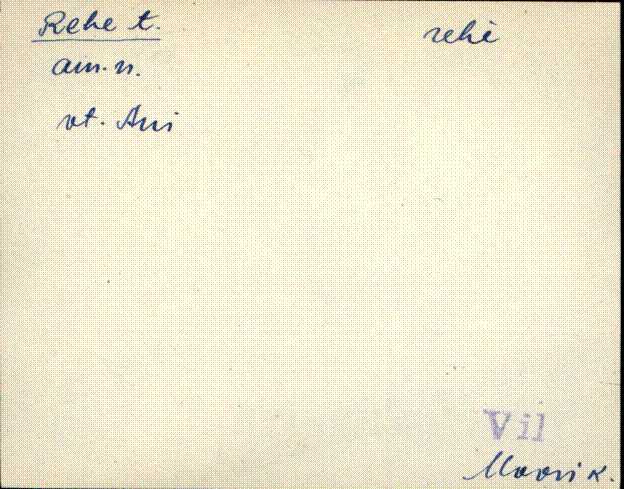 Rehe t. rehè
am. n.
vt. Ani
Vil
Moori k.